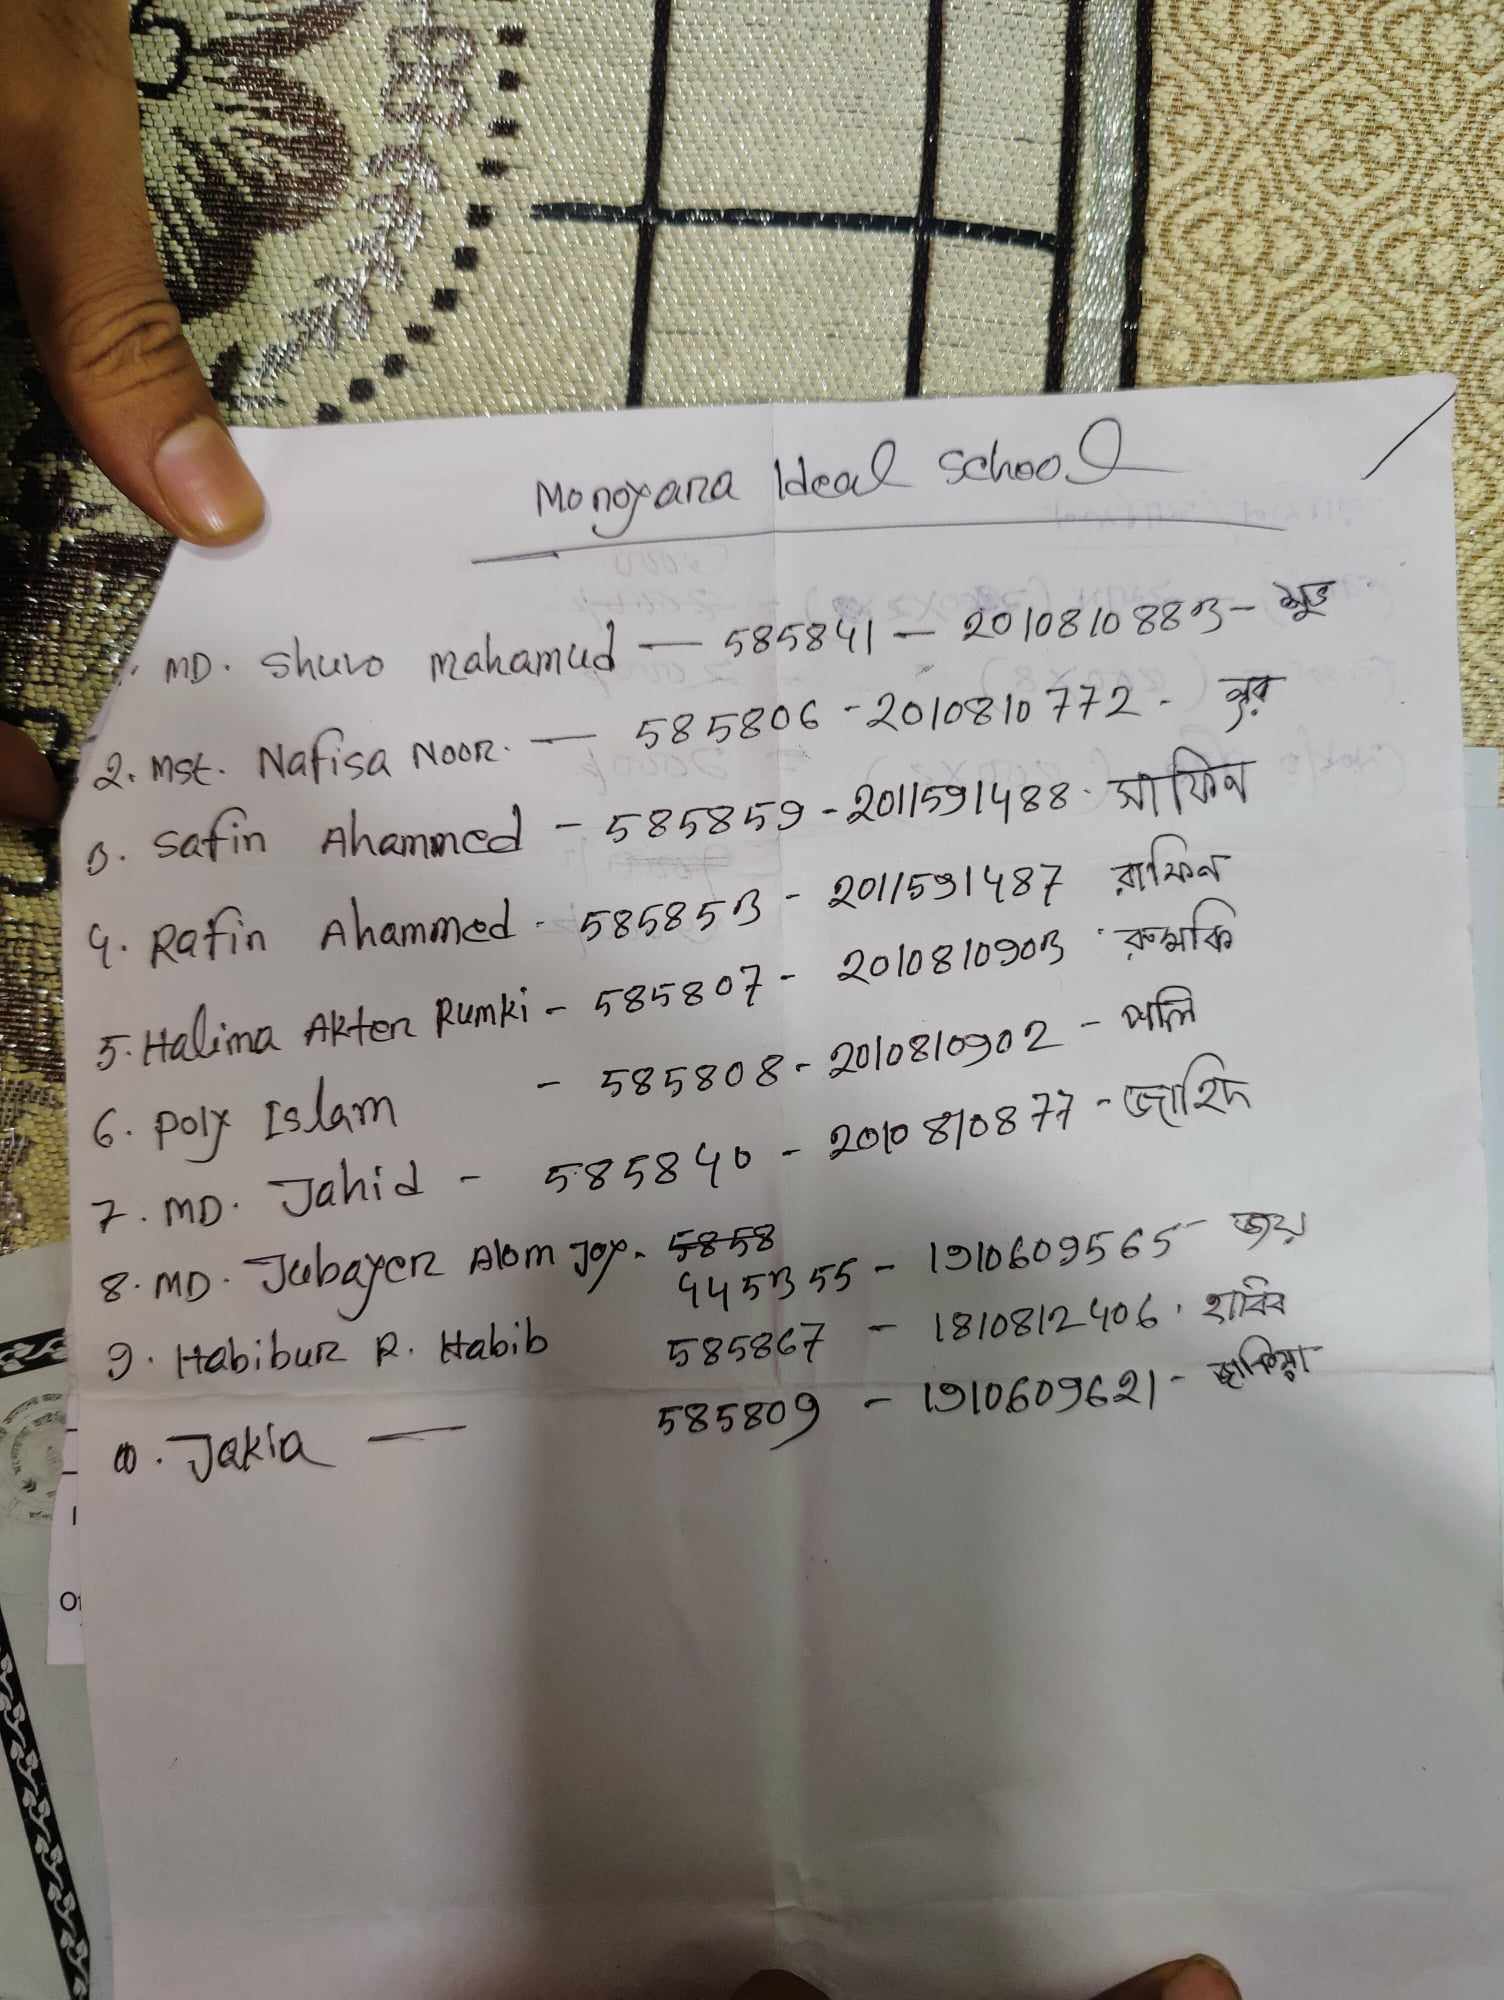 Monoyara Ideal School
1. MD. Shuvo Mahamud — 585841 — 2010810883 - শুভ
2. Mst. Nafisa Noor. — 585806 - 2010810772 - নুর
3. Safin Ahammed - 585859 - 2011591488 - সাফিন
4. Rafin Ahammed - 585853 - 2011591487 রাফিন
5. Halima Akter Rumki - 585807 - 2010810903 রুমকি
6. Poly Islam - 585808 - 2010810902 - পলি
7. MD. Jahid - 585840 - 2010810877 - জাহিদ
8. MD. Jubayer Alom Joy. 5858
445355 - 1910609565 - জয়
9. Habibur R. Habib 585867 - 1810812406 - হাবিব
10. Jakia — 585809 - 1910609621 - জাকিয়া